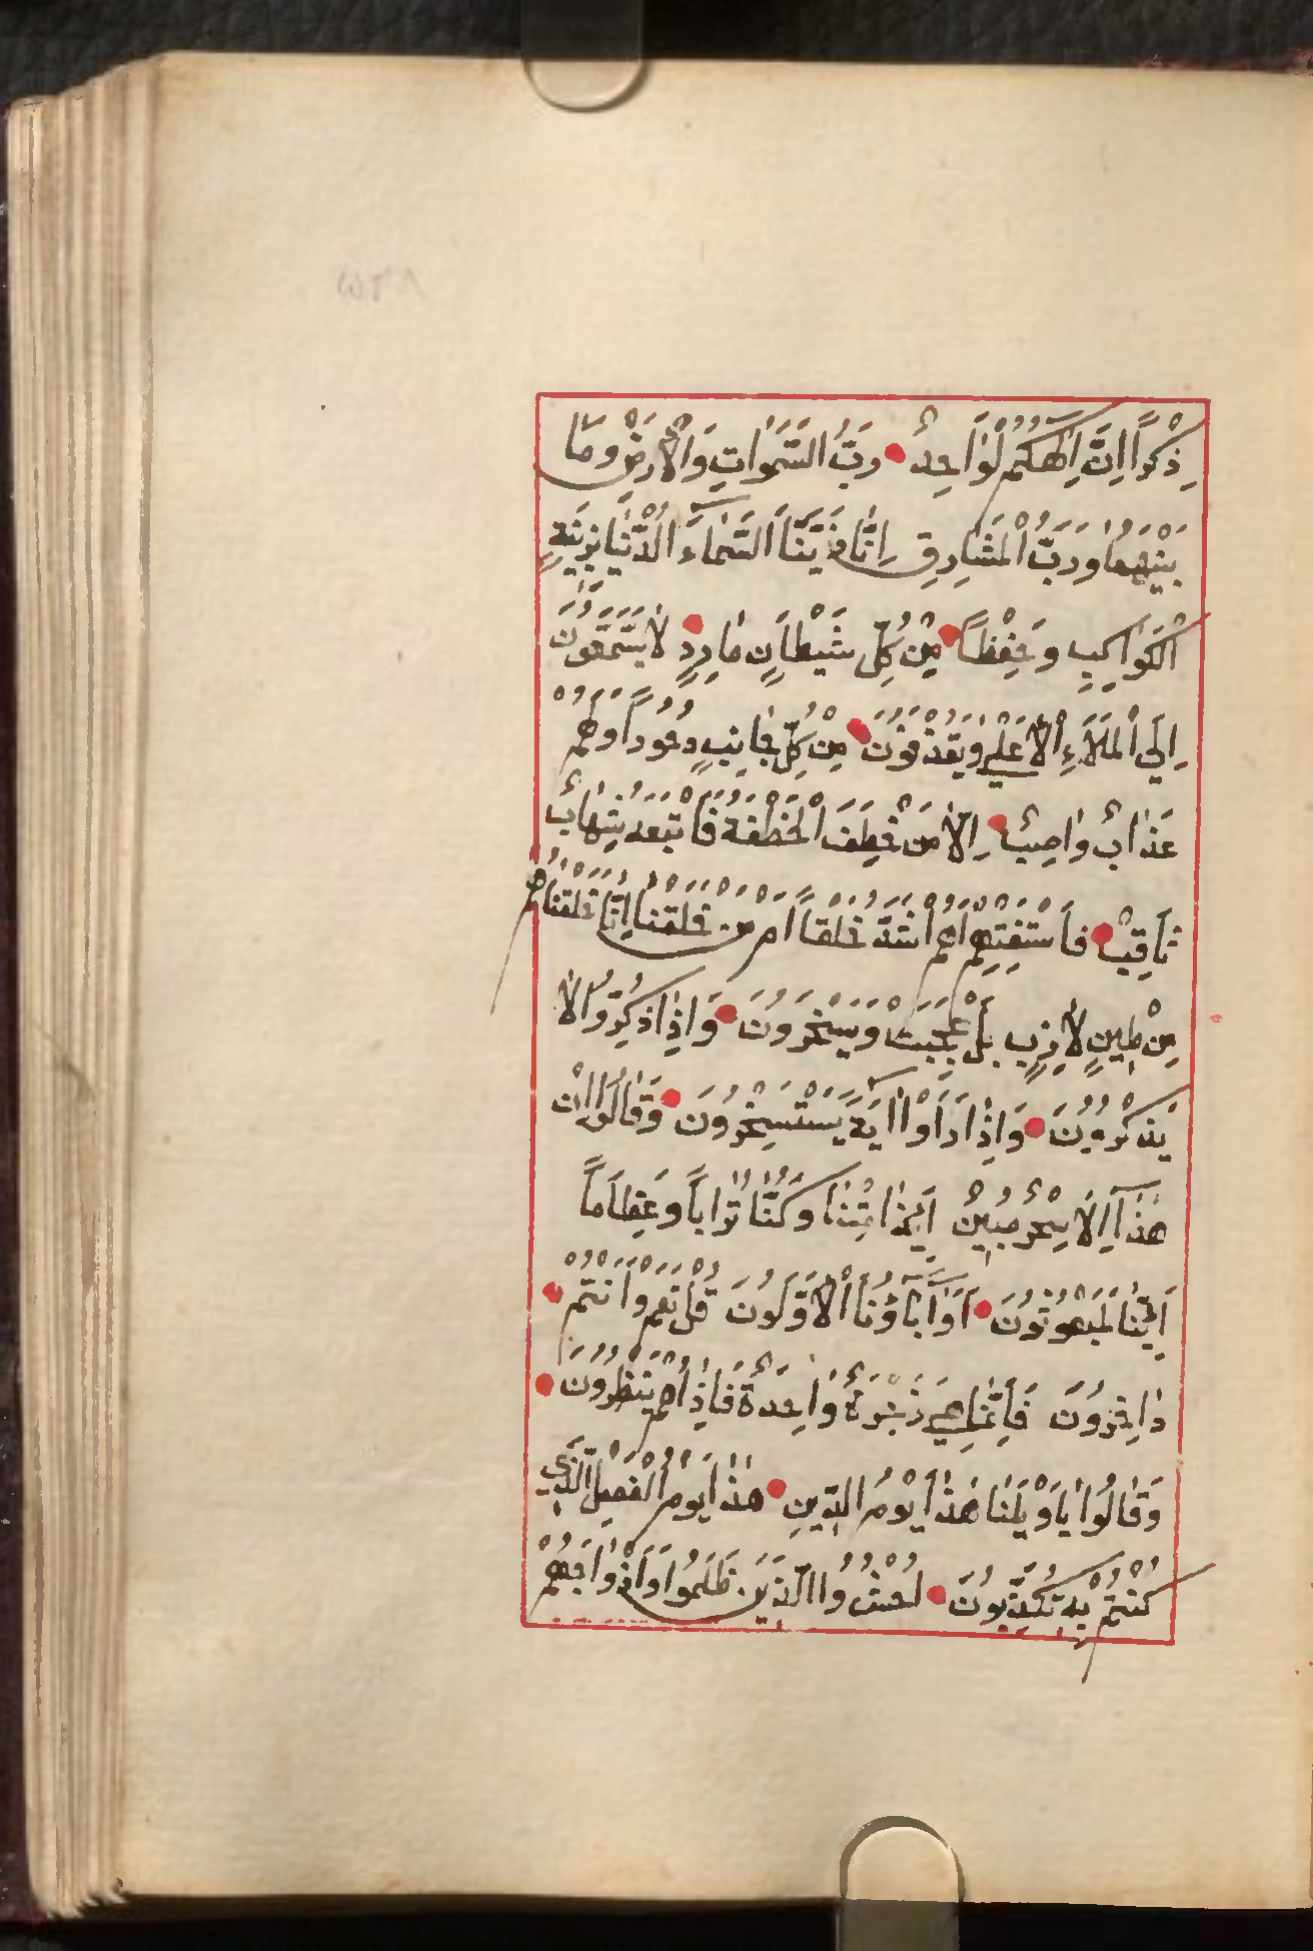 ٣٢٨
ذِكْرًا اِنَّ اِلٰهَكُمْ لَوَاحِدٌ رَبُّ السَّمَوَاتِ وَالْاَرْضِ وَمَا
بَيْنَهُمَا وَرَبُّ الْمَشَارِقِ اِنَّا زَيَّنَّا السَّمَآءَ الدُّنْيَا بِزِينَةٍ
الْكَوَاكِبِ وَحِفْظًا مِنْ كُلِّ شَيْطَانٍ مَارِدٍ لَا يَسَّمَّعُونَ
اِلَى الْمَلَاءِ الْاَعْلٰى وَيُقْذَفُونَ مِنْ كُلِّ جَانِبٍ دُحُورًا وَلَهُمْ
عَذَابٌ وَاصِبٌ اِلَّا مَنْ خَطِفَ الْخَطْفَةَ فَاَتْبَعَهُ شِهَابٌ
ثَاقِبٌ فَاسْتَفْتِهِمْ اَهُمْ اَشَدُّ خَلْقًا اَمْ مَنْ خَلَقْنَا اِنَّا خَلَقْنَاهُمْ
مِنْ طِينٍ لَازِبٍ بَلْ عَجِبْتَ وَيَسْخَرُونَ وَاِذَا ذُكِّرُوا لَا
يَذْكُرُونَ وَاِذَا رَاَوْا اٰيَةً يَسْتَسْخِرُونَ وَقَالُوا اِنْ
هٰذَآ اِلَّا سِحْرٌ مُبِينٌ اَئِذَا مِتْنَا وَكُنَّا تُرَابًا وَعِظَامًا
اَئِنَّا لَمَبْعُوثُونَ اَوَاٰبَآؤُنَا الْاَوَّلُونَ قُلْ نَعَمْ وَاَنْتُمْ
دَاخِرُونَ فَاِنَّمَا هِيَ زَجْرَةٌ وَاحِدَةٌ فَاِذَا هُمْ يَنْظُرُونَ
وَقَالُوا يَا وَيْلَنَا هٰذَا يَوْمُ الدِّينِ هٰذَا يَوْمُ الْفَصْلِ الَّذِي
كُنْتُمْ بِهِ تُكَذِّبُونَ احْشُرُوا الَّذِينَ ظَلَمُوا وَاَزْوَاجَهُمْ